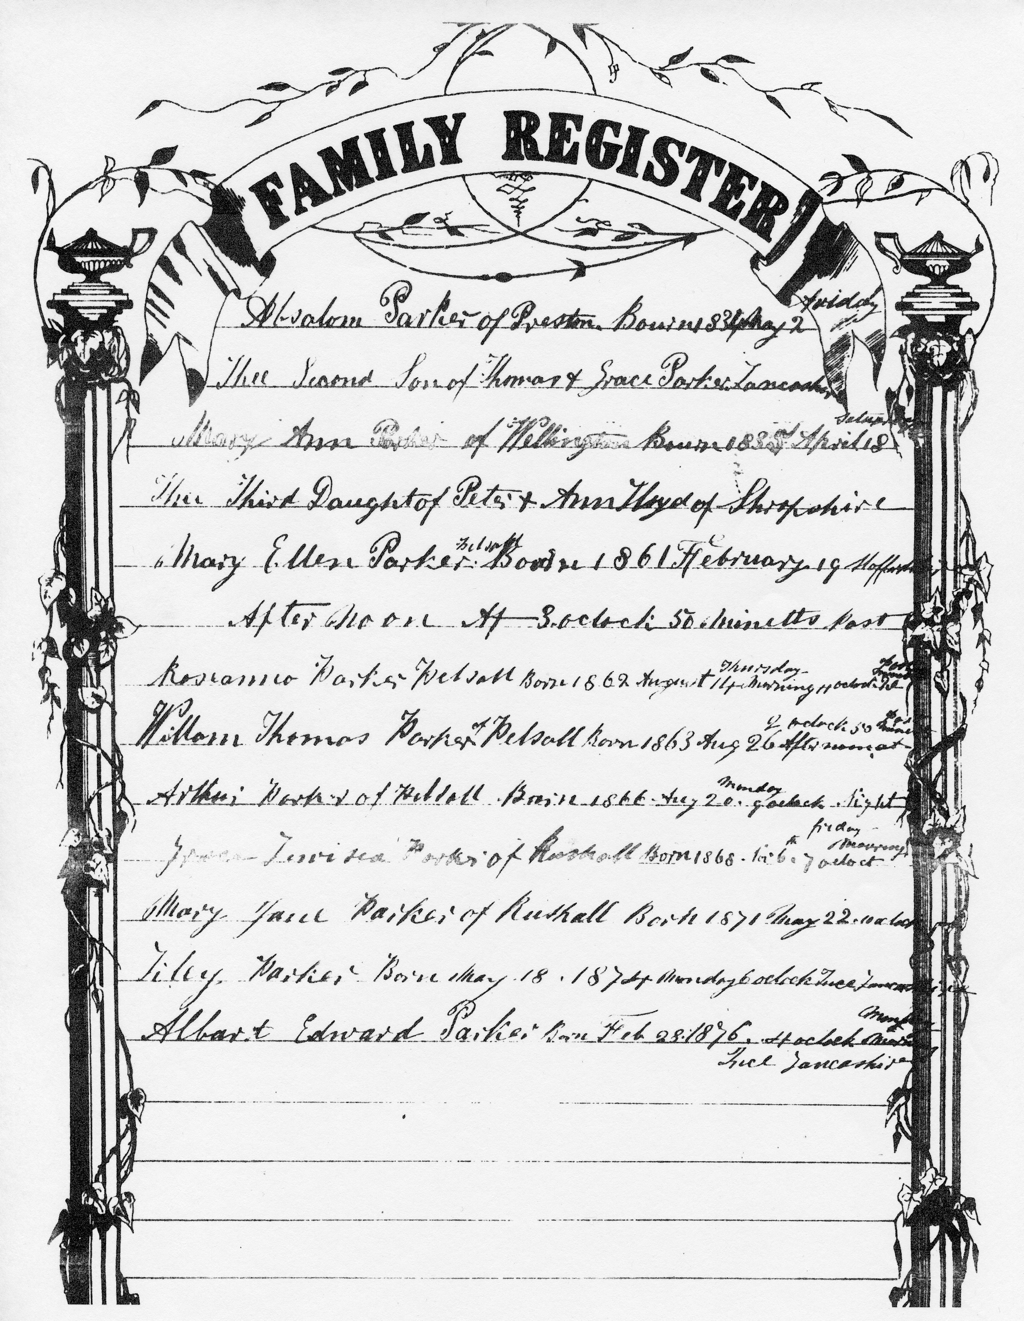 FAMILY REGISTER
Absalom Parker of Preston Bourn 1834 May 2 friday
Thee Second Son of Thomas & Grace Parker Lancashire
Mary Ann Parker of Wellington Bourn April 18
Thee Third Daught of Peter & Ann Lloyd of Shropshire
Mary Ellen Parker Pelsall Born 1861 February 19
After Noon At 3 oclock 50 Minetts Past
Roseanna Parker Pelsall Born 1862 August 14 Thursday Morning
Willam Thomas Parker of Pelsall Born 1863 Aug 26 Afternoon at oclock 50
Arthur Parker of Pelsall Born 1866 Aug 20 Monday 9 oclock Night
Parker of Rushall Born 1868 friday Morning 7 oclock
Mary Jane Parker of Rushall Born 1871 May 22
Tiley Parker Born May 18 1874 Monday 6 oclock Ince Lancashire
Albart Edward Parker Born Feb 28 1876 4 oclock
Ince Lancashire